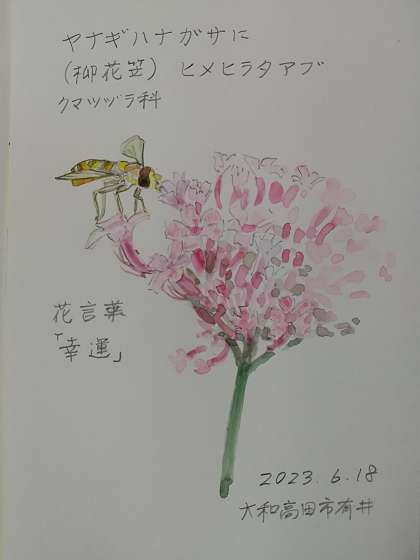 ヤナギハナガサに
(柳花笠) ヒメヒラタアブ
クマツヅラ科
花言葉
「幸運」
2023.6.18
大和高田市有井